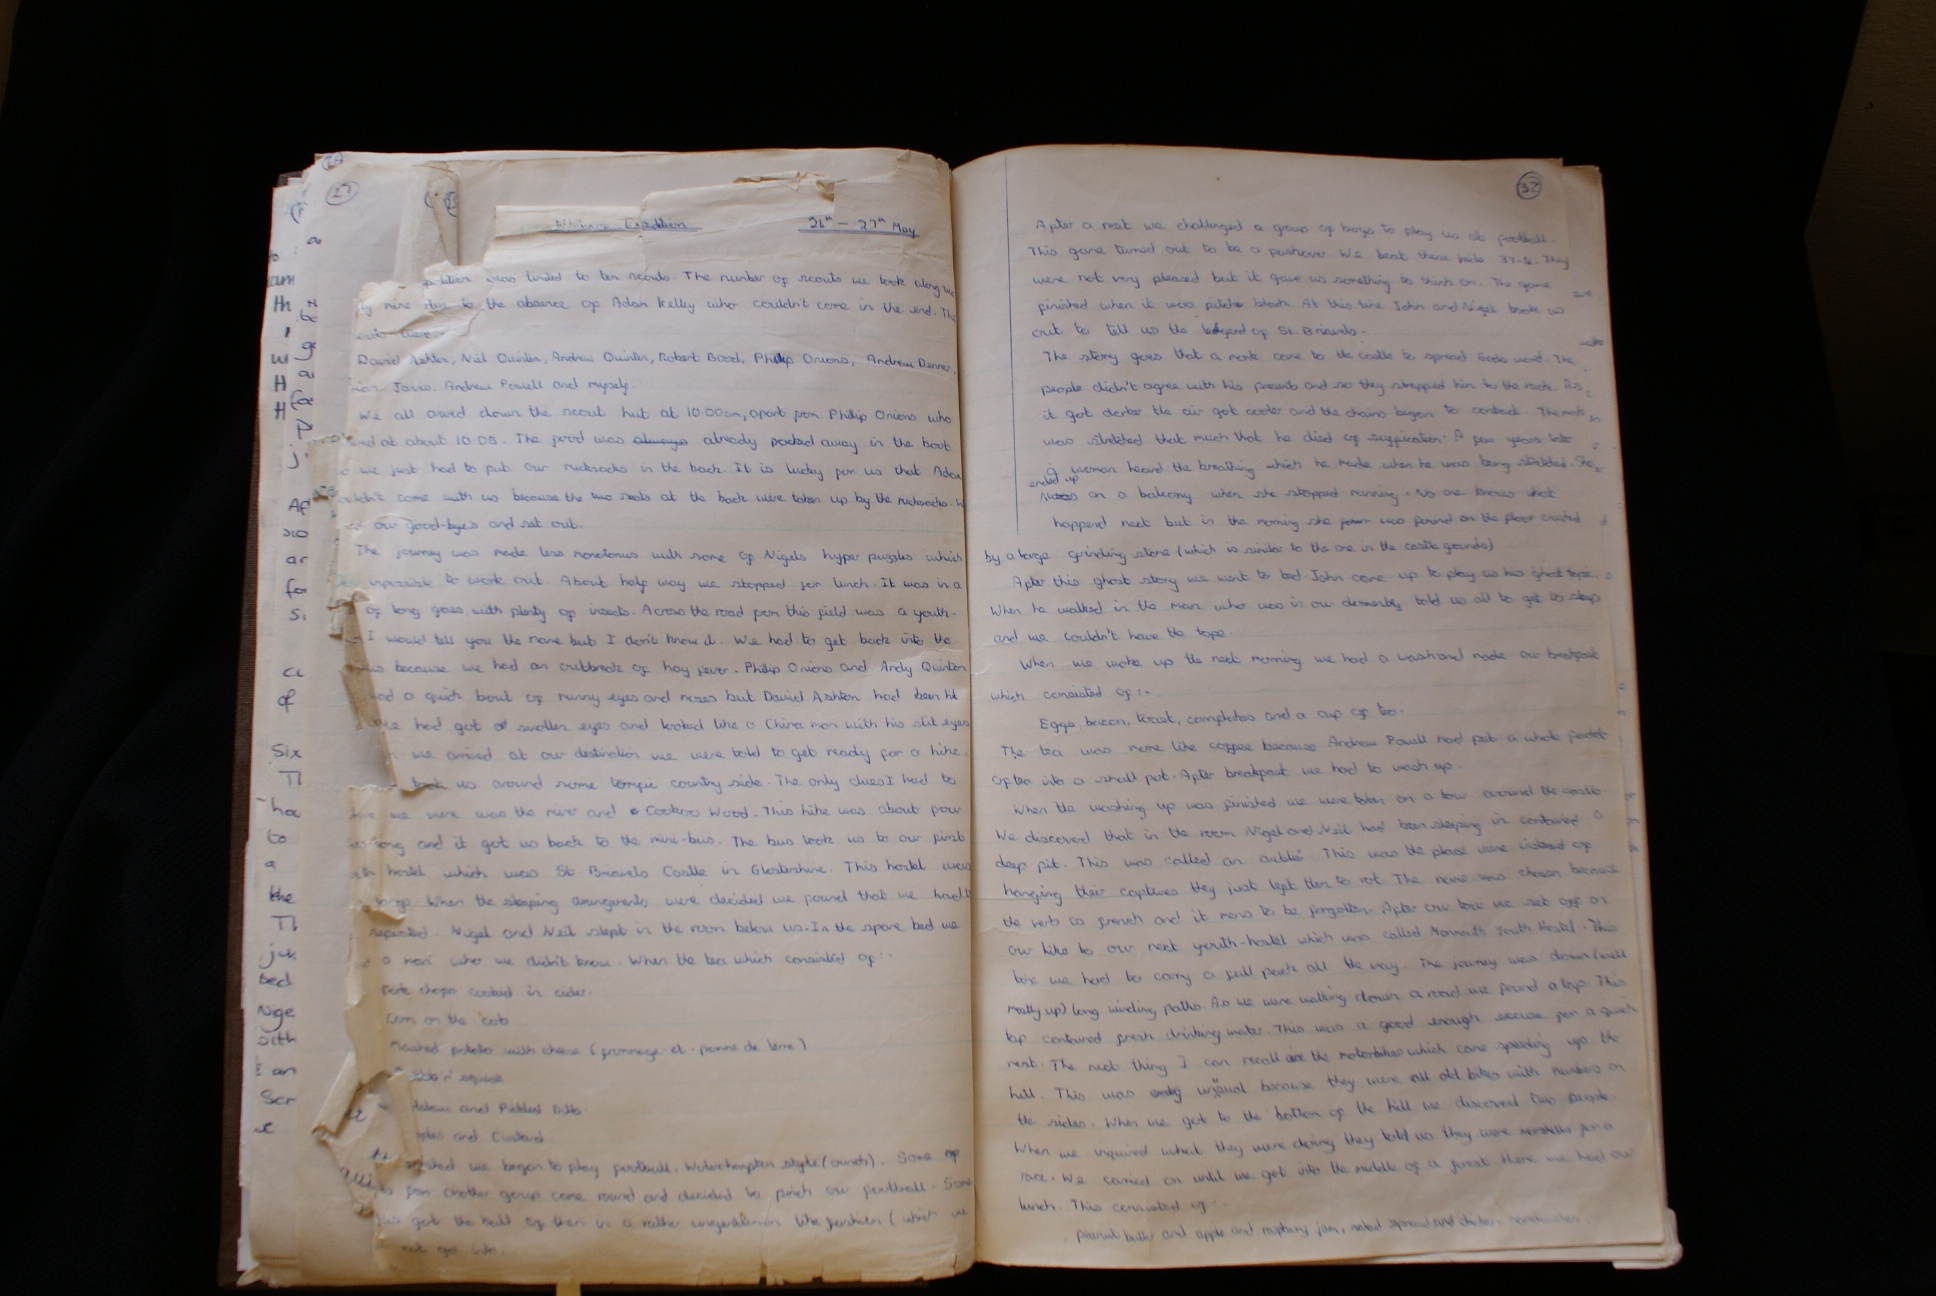 27
Expedition 26th - 27th May
was limited to ten scouts. The number of scouts we took along
nine due to the absence of Adam Kelley who couldn't come in the end. The
were:-
David Ashton, Neil Quinten, Andrew Quinten, Robert Bood, Phillip Onions, Andrew
Jarvis, Andrew Powell and myself.
We all arived down the scout hut at 10:00am, apart from Phillip Onions who
at about 10.05. The food was already packed away in the boot
we just had to put our rucksacks in the back. It is lucky for us that Adam
couldn't come with us because the two seats at the back were taken up by the rucksacks.
our good-bye's and set out.
The journey was made less monotonus with some of Nigels hyper puzzles which
impossible to work out. About half way we stopped for lunch. It was in a
of long grass with plenty of insects. Across the road from this field was a youth-
I would tell you the name but I don't know it. We had to get back into the
because we had an outbreak of hay fever. Phillip Onions and Andy Quinten
had a quick bout of runny eyes and noses but David Ashton had been hit
had got swollen eyes and looked like a China man with his slit eyes
we arrived at our destination we were told to get ready for a hike.
took us around some terrific country side. The only clues I had to
we were was the river and Cockers Wood. This hike was about four
long and it got us back to the mini-bus. The bus took us to our first
hostel which was St. Briavels Castle in Glostershire. This hostel was
When the sleeping arrangements were decided we found that we had
seperated. Nigel and Neil slept in the room below us. In the spare bed we
a man who we didn't know. When the tea which consisted of:-
pork chops cooked in cider.
corn on the cob
Mashed potato with cheese (frommage-et-pomme de terre)

and Pickled
and Custard
we began to play football, Wolverhampton style (ouch). Some
from another group came round and decided to pinch our football. Some
got the ball of them in a rather ungentlemen like fashion (which we
not go into.
32
After a rest we challenged a group of boys to play us at football.
This game turned out to be a pushover. We beat these kids 37-6. They
were not very pleased but it gave us something to think on. The game
finished when it was pitch black. At this time John and Nigel took us
out to tell us the legend of St. Briavels.
The story goes that a monk came to the castle to spread Gods word. The
people didn't agree with his presents and so they strapped him to the rack. As
it got darker the air got cooler and the chains began to contract. The monk
was stretched that much that he died of suffication. A few years later
a woman heard the breathing which he made when he was being stretched. She
ended up
on a balcony when she stopped running. No one knows what
happend next but in the morning she was found on the floor crushed
by a large grinding stone (which is similar to the one in the castle grounds)
After this ghost story we went to bed. John came up to play us his ghost tape.
When he walked in the man who was in our dormentry told us all to get to sleep
and we couldn't have the tape.
When we woke up the next morning we had a wash and made our breakfast
which consisted of:-
Eggs, bacon, toast, cornflakes and a cup of tea.
The tea was more like coffee because Andrew Powell had put a whole packet
of tea into a small pot. After breakfast we had to wash up.
When the washing up was finished we were taken on a tour around the castle.
We discovered that in the room Nigel and Neil had been sleeping in contained a
deep pit. This was called an. This was the place were instead of
hanging their captives they just left them to rot. The name was chosen because
the verb is french and it mens to be forgotten. After our tour we set off on
our hike to our next youth-hostel which was called Monmouth Youth Hostel. This
time we had to carry a full pack all the way. The journey was down (well
mostly up) long winding paths. As we were walking down a road we found a tap. This
tap contained fresh drinking water. This was a good enough excuse for a quick
rest. The next thing I can recall are the motorbikes which came speeding up the
hill. This was unusual because they were all old bikes with numbers on
the sides. When we got to the bottom of the hill we discovered two people.
When we inquired what they were doing they told us they were marshells for a
race. We carried on until we got into the middle of a forest. Here we had our
lunch. This consisted of:-
peanut butter and apple and raspberry jam, salad spread and chicken sandwiches.